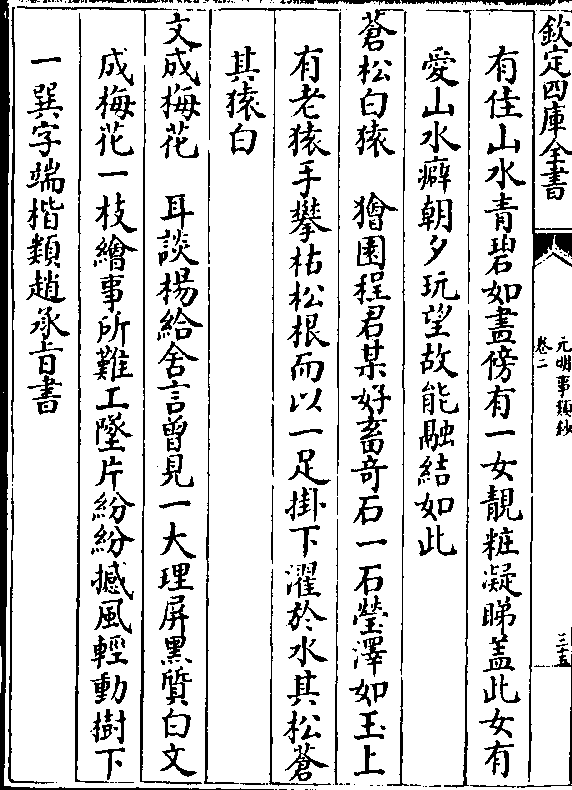 欽定四庫全書
元明事類鈔
卷二
三五
有佳山水青碧如畫傍有一女靚粧凝睇盖此女有
愛山水癖朝夕玩望故能融結如此
蒼松白猿　獪園程君某好畜奇石一石瑩澤如玉上
有老猿手攀枯松根而以一足掛下濯於水其松蒼
其猿白
文成梅花　耳談楊給舍言曽見一大理屏黒質白文
成梅花一枝繪事所難工墜片紛紛撼風輕動樹下
一巽字端楷類趙承㫖書